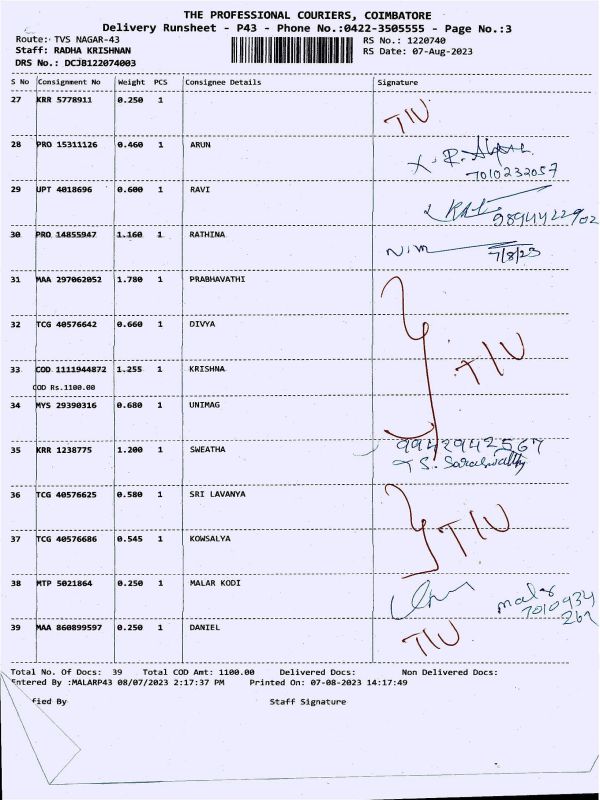 THE PROFESSIONAL COURIERS, COIMBATORE
Delivery Runsheet - P43 - Phone No.:0422-3505555 - Page No.:3
Route: TVS NAGAR-43 RS No.: 1220740
Staff: RADHA KRISHNAN RS Date: 07-Aug-2023
DRS No.: DCJB122074003
S No Consignment No Weight PCS Consignee Details Signature
27 KRR 5778911 0.250 1 T/U
28 PRO 15311126 0.460 1 ARUN
7010232057
29 UPT 4018696 0.600 1 RAVI
9894422902
30 PRO 14855947 1.160 1 RATHINA
7/8/23
31 MAA 297062052 1.780 1 PRABHAVATHI
32 TCG 40576642 0.660 1 DIVYA
33 COD 1111944872 1.255 1 KRISHNA T/U
COD Rs.1100.00
34 MYS 29390316 0.680 1 UNIMAG
35 KRR 1238775 1.200 1 SWEATHA 9942942567
36 TCG 40576625 0.580 1 SRI LAVANYA
37 TCG 40576686 0.545 1 KOWSALYA T/U
38 MTP 5021864 0.250 1 MALAR KODI
7010934
261
39 MAA 860899597 0.250 1 DANIEL T/U
Total No. Of Docs: 39 Total COD Amt: 1100.00 Delivered Docs: Non Delivered Docs:
Entered By :MALARP43 08/07/2023 2:17:37 PM Printed On: 07-08-2023 14:17:49
fied By Staff Signature